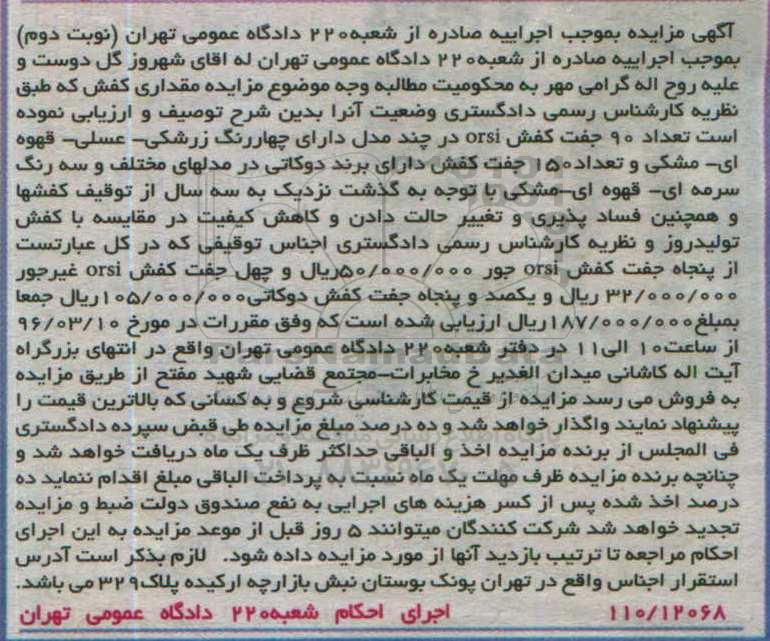 آگهی مزایده بموجب اجراییه صادره از شعبه۲۲۰ دادگاه عمومی تهران (نوبت دوم)
بموجب اجراییه صادره از شعبه۲۲۰ دادگاه عمومی تهران له اقای شهروز گل دوست و
علیه روح اله گرامی مهر به محکومیت مطالبه وجه موضوع مزایده مقداری کفش که طبق
نظریه کارشناس رسمی دادگستری وضعیت آنرا بدین شرح توصیف و ارزیابی نموده
است تعداد ۹۰ جفت کفش orsi در چند مدل دارای چهاررنگ زرشکی- عسلی- قهوه
ای- مشکی و تعداد۱۵۰ جفت کفش دارای برند دوکاتی در مدلهای مختلف و سه رنگ
سرمه ای- قهوه ای-مشکی با توجه به گذشت نزدیک به سه سال از توقیف کفشها
و همچنین فساد پذیری و تغییر حالت دادن و کاهش کیفیت در مقایسه با کفش
تولیدروز و نظریه کارشناس رسمی دادگستری اجناس توقیفی که در کل عبارتست
از پنجاه جفت کفش orsi جور ۵۰/۰۰۰/۰۰۰ریال و چهل جفت کفش orsi غیرجور
۳۲/۰۰۰/۰۰۰ ریال و یکصد و پنجاه جفت کفش دوکاتی۱۰۵/۰۰۰/۰۰۰ریال جمعا
بمبلغ۱۸۷/۰۰۰/۰۰۰ریال ارزیابی شده است که وفق مقررات در مورخ ۹۶/۰۳/۱۰
از ساعت۱۰ الی۱۱ در دفتر شعبه۲۲۰ دادگاه عمومی تهران واقع در انتهای بزرگراه
آیت اله کاشانی میدان الغدیر خ مخابرات-مجتمع قضایی شهید مفتح از طریق مزایده
به فروش می رسد مزایده از قیمت کارشناسی شروع و به کسانی که بالاترین قیمت را
پیشنهاد نمایند واگذار خواهد شد و ده درصد مبلغ مزایده طی قبض سپرده دادگستری
فی المجلس از برنده مزایده اخذ و الباقی حداکثر ظرف یک ماه دریافت خواهد شد و
چنانچه برنده مزایده ظرف مهلت یک ماه نسبت به پرداخت الباقی مبلغ اقدام ننماید ده
درصد اخذ شده پس از کسر هزینه های اجرایی به نفع صندوق دولت ضبط و مزایده
تجدید خواهد شد شرکت کنندگان میتوانند ۵ روز قبل از موعد مزایده به این اجرای
احکام مراجعه تا ترتیب بازدید آنها از مورد مزایده داده شود. لازم بذکر است آدرس
استقرار اجناس واقع در تهران پونک بوستان نبش بازارچه ارکیده پلاک۳۲۹ می باشد.
۱۱۰/۱۲۰۶۸ اجرای احکام شعبه۲۲۰ دادگاه عمومی تهران